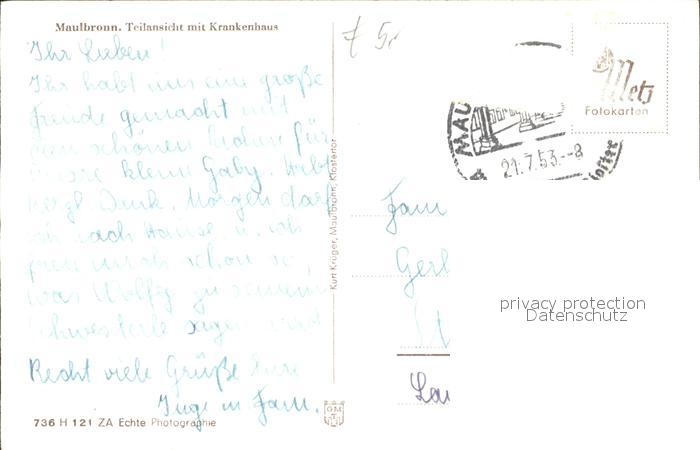 Maulbronn. Teilansicht mit Krankenhaus
Ihr Lieben!
Ihr habt uns eine große
Freude gemacht mit
den schönen Sachen für
unsre kleine Gaby. Habt
herzl. Dank. Morgen darf
ich nach Hause u. ich
freu mich schon so,
was Wolfg. zu seinem
Schwesterle sagen wird.
Recht viele Grüße Eure
Inge m. Fam.
736 H 121 ZA Echte Photographie
Kurt Krüger, Maulbronn, Klostertor
GM
Metz
Fotokarten
MAU
21.7.53.--8
Fam
Gerl
privacy protection
Datenschutz